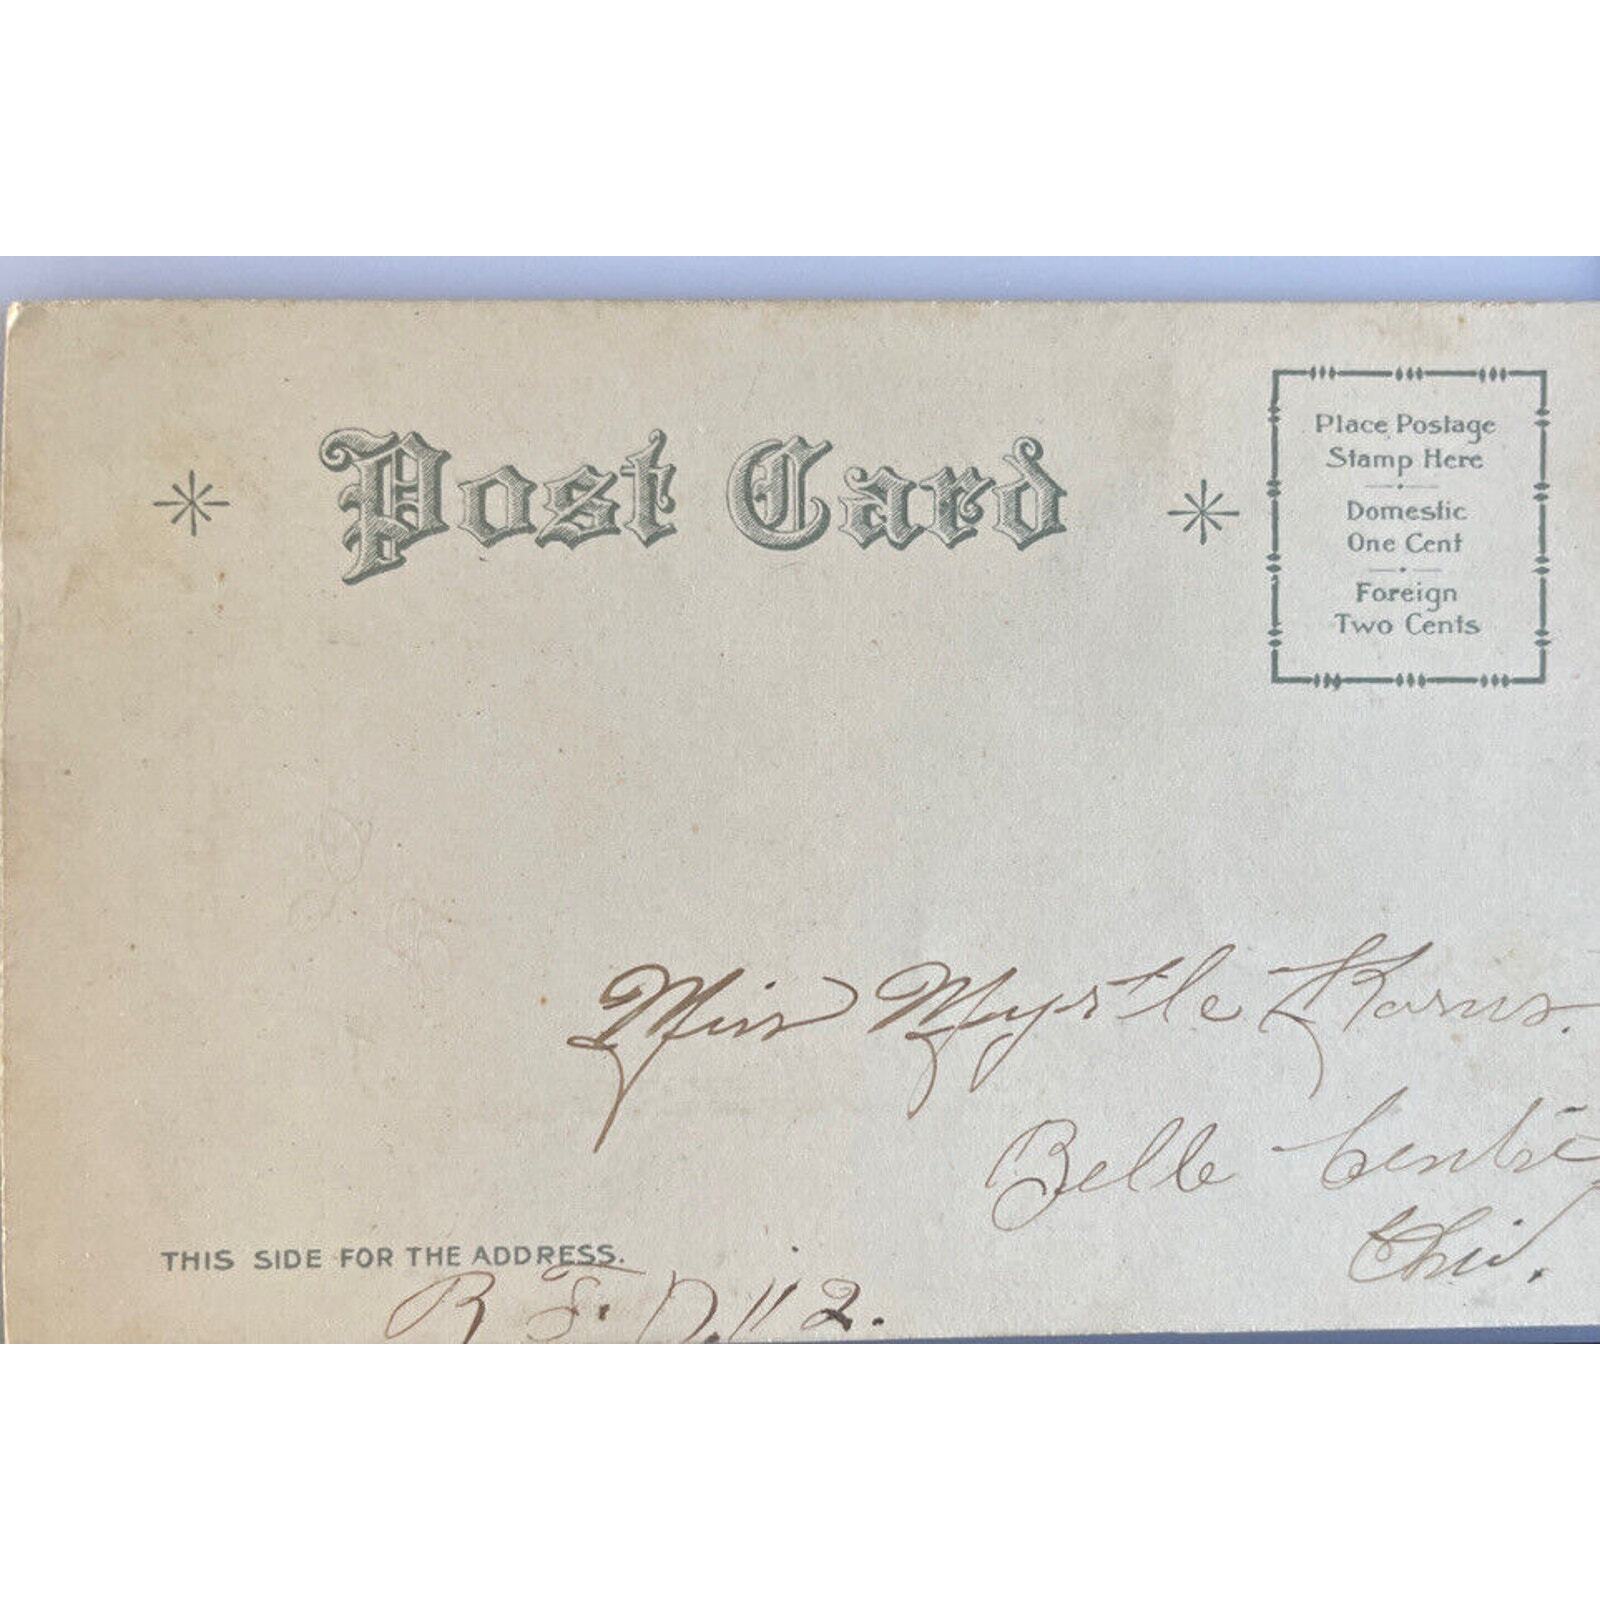 Post Card
Place Postage
Stamp Here
Domestic
One Cent
Foreign
Two Cents
Miss Myrtle Korns.
Belle Centre
Ohio.
THIS SIDE FOR THE ADDRESS.
R. F. D. # 2.